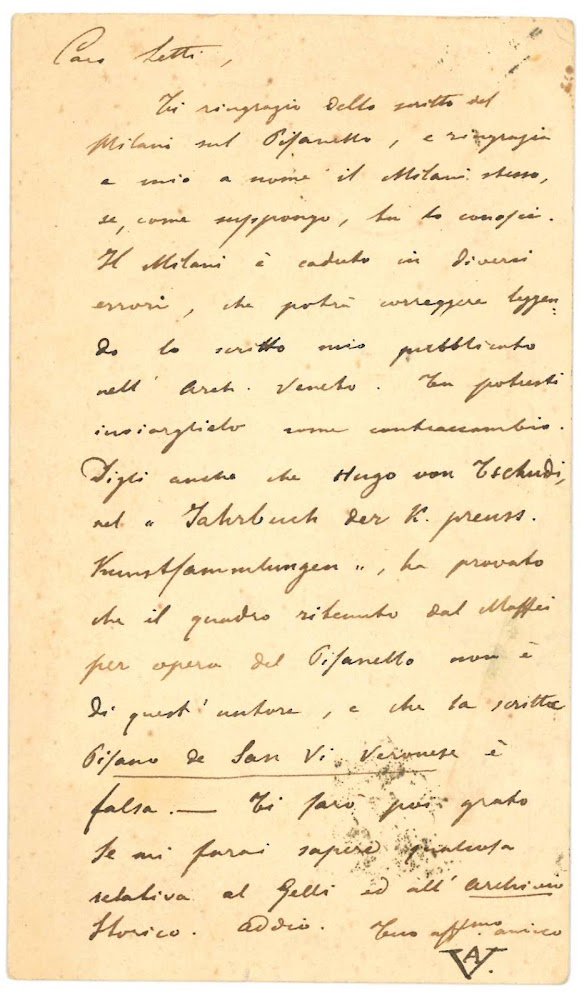 Caro Setti,
Ti ringrazio dello scritto del
Milani sul Pisanello, e ringrazia
a mio nome il Milani stesso,
se, come suppongo, tu lo conosci.
Il Milani è caduto in diversi
errori, che potrà correggere leggen-
do lo scritto mio pubblicato
nell' Arch. Veneto. Tu potresti
inviarglielo come contraccambio.
Digli anche che Hugo von Tschudi,
nel « Jahrbuch der K. preuss.
Kunstsammlungen », ha provato
che il quadro ritenuto dal Maffei
per opera del Pisanello non è
di quest' autore, e che la scritta
Pisano de San Vi Veronese è
falsa. — Ti sarò poi grato
se mi farai sapere qualcosa
relativa al Gelli ed all' Archivio
Storico. Addio. Tuo aff.mo amico